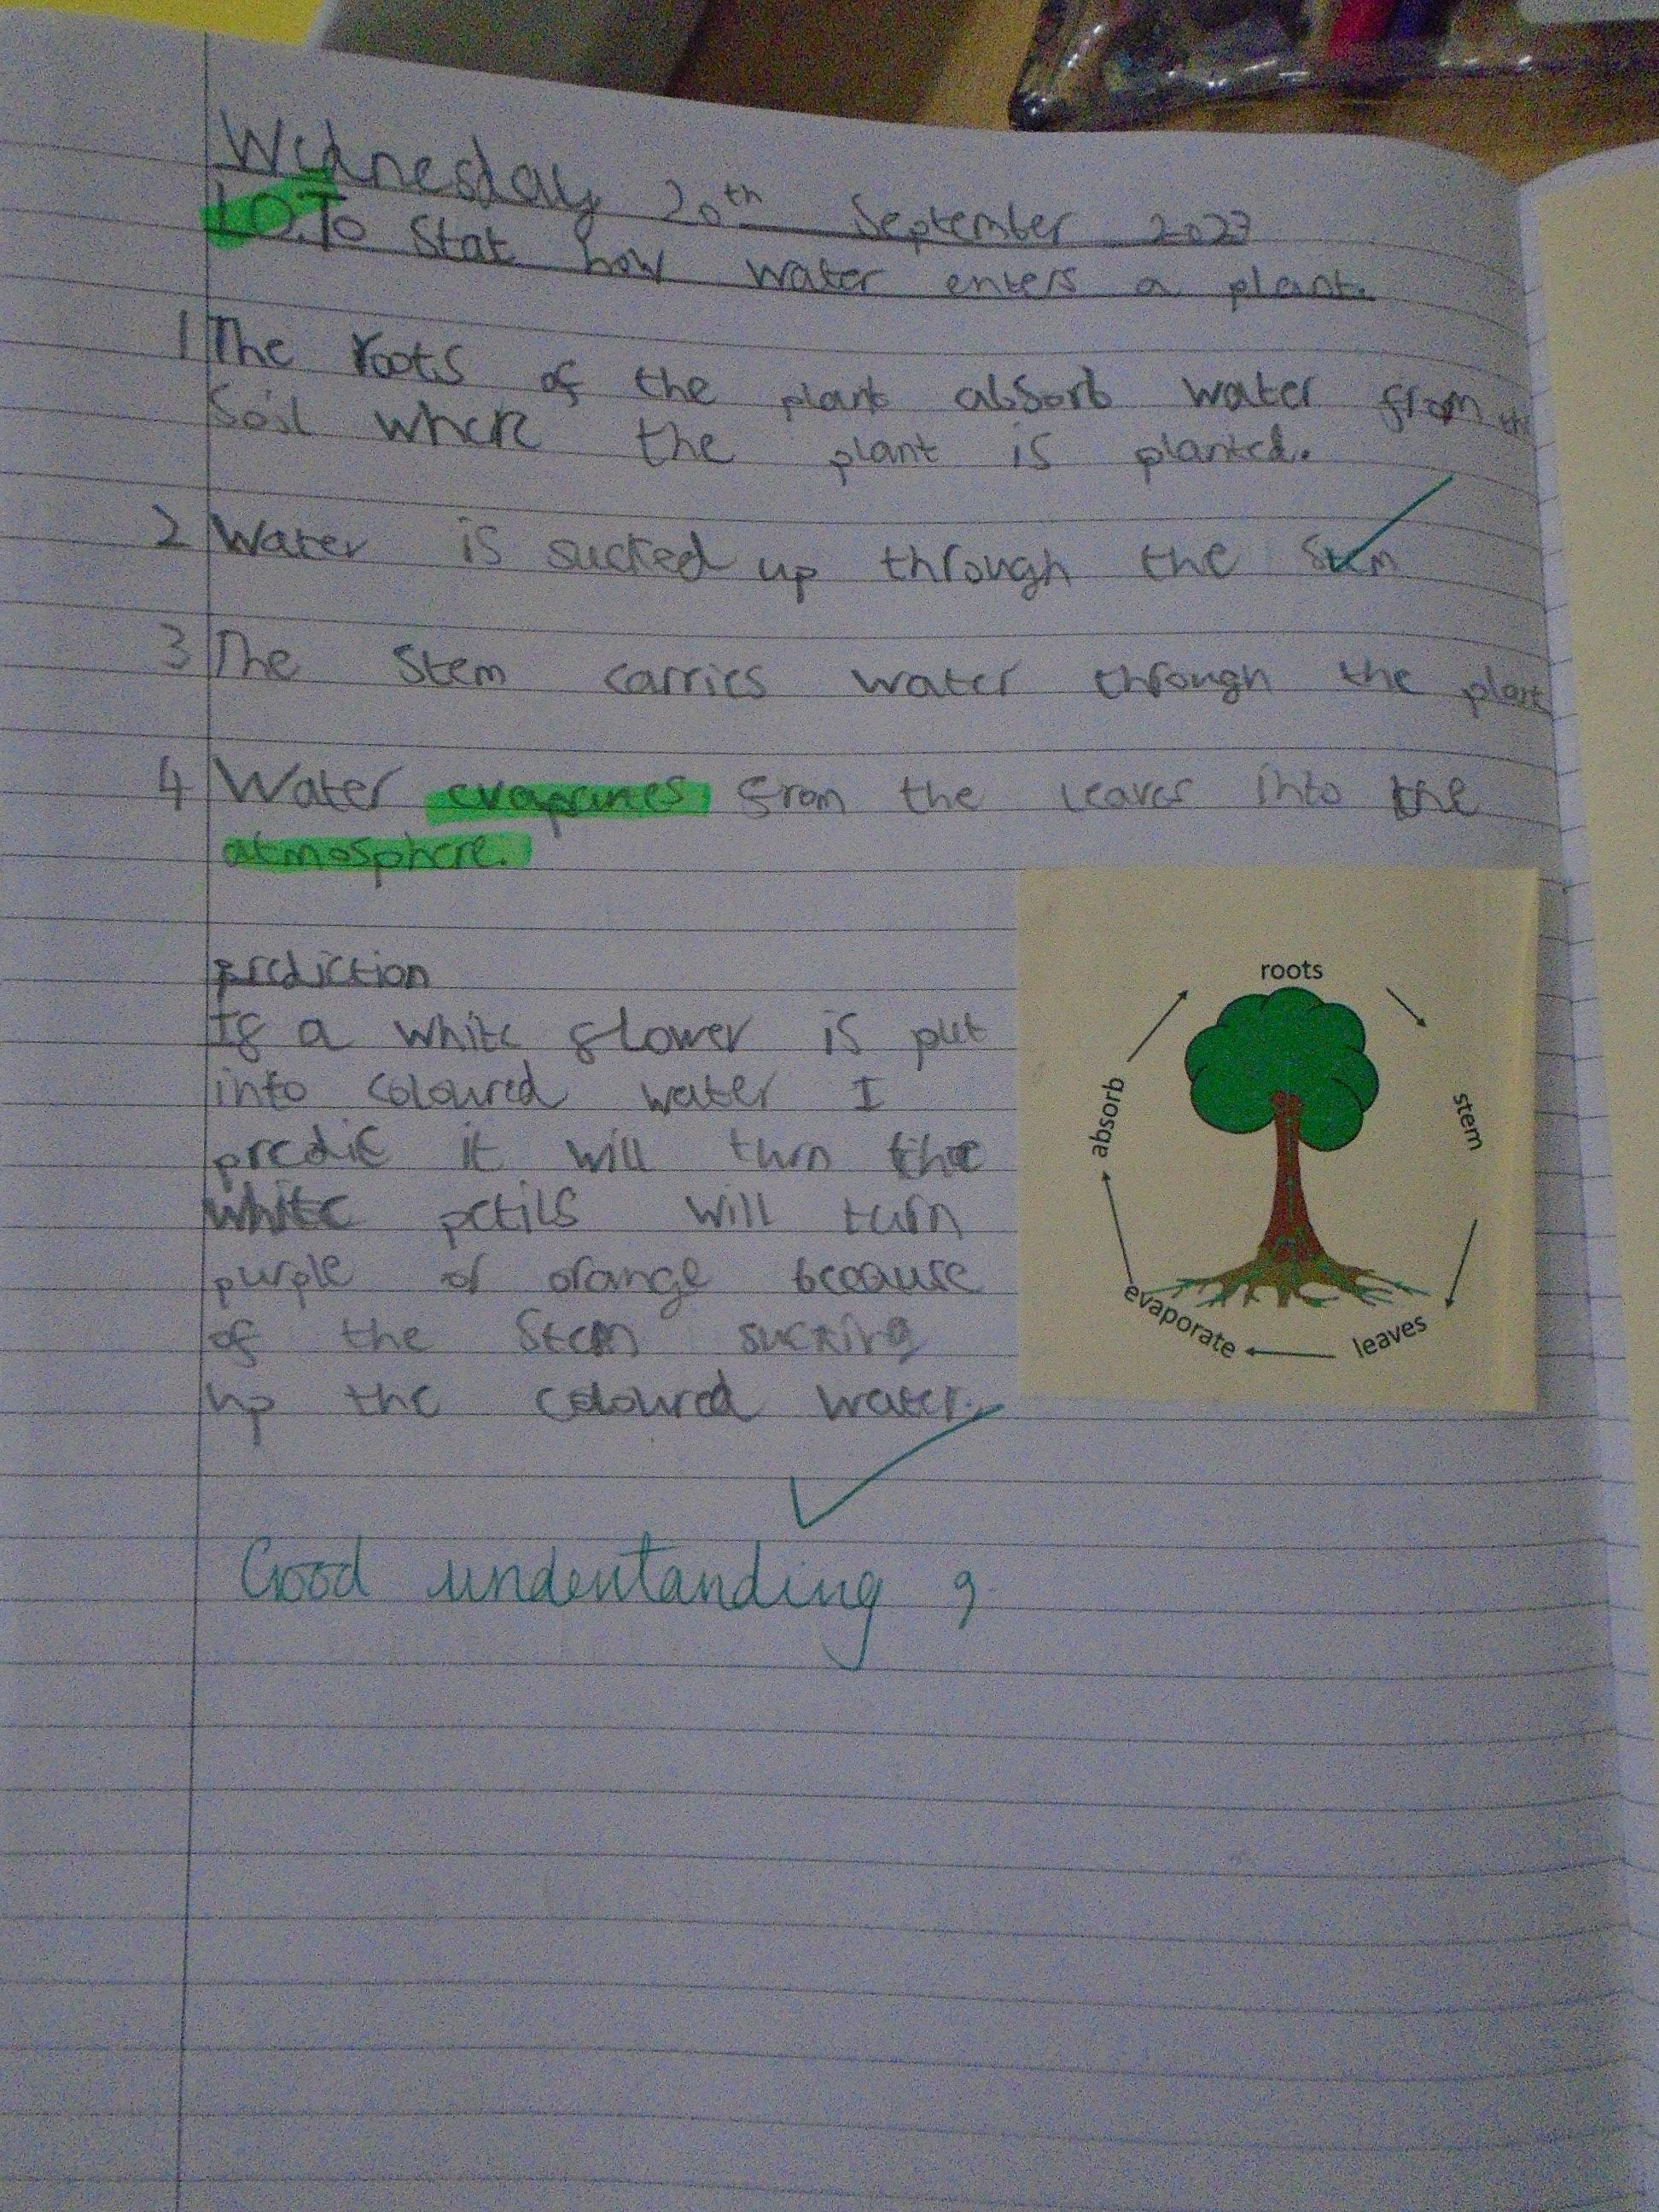 Wednesday 20th September 2023
LO.To Stat how water enters a plant.
1 The roots of the plant absorb water from the
Soil where the plant is planted.
2 Water is sucked up through the stem
3 The Stem carries water through the plant
4 Water from the leaves into the
atmosphere.
prediction
If a white flower is put
into coloured water I
predic it will turn the
white petils will turn
purple or orange because
of the Stem sucking
up the coloured water.
roots
stem
leaves
evaporate
absorb
Good understanding